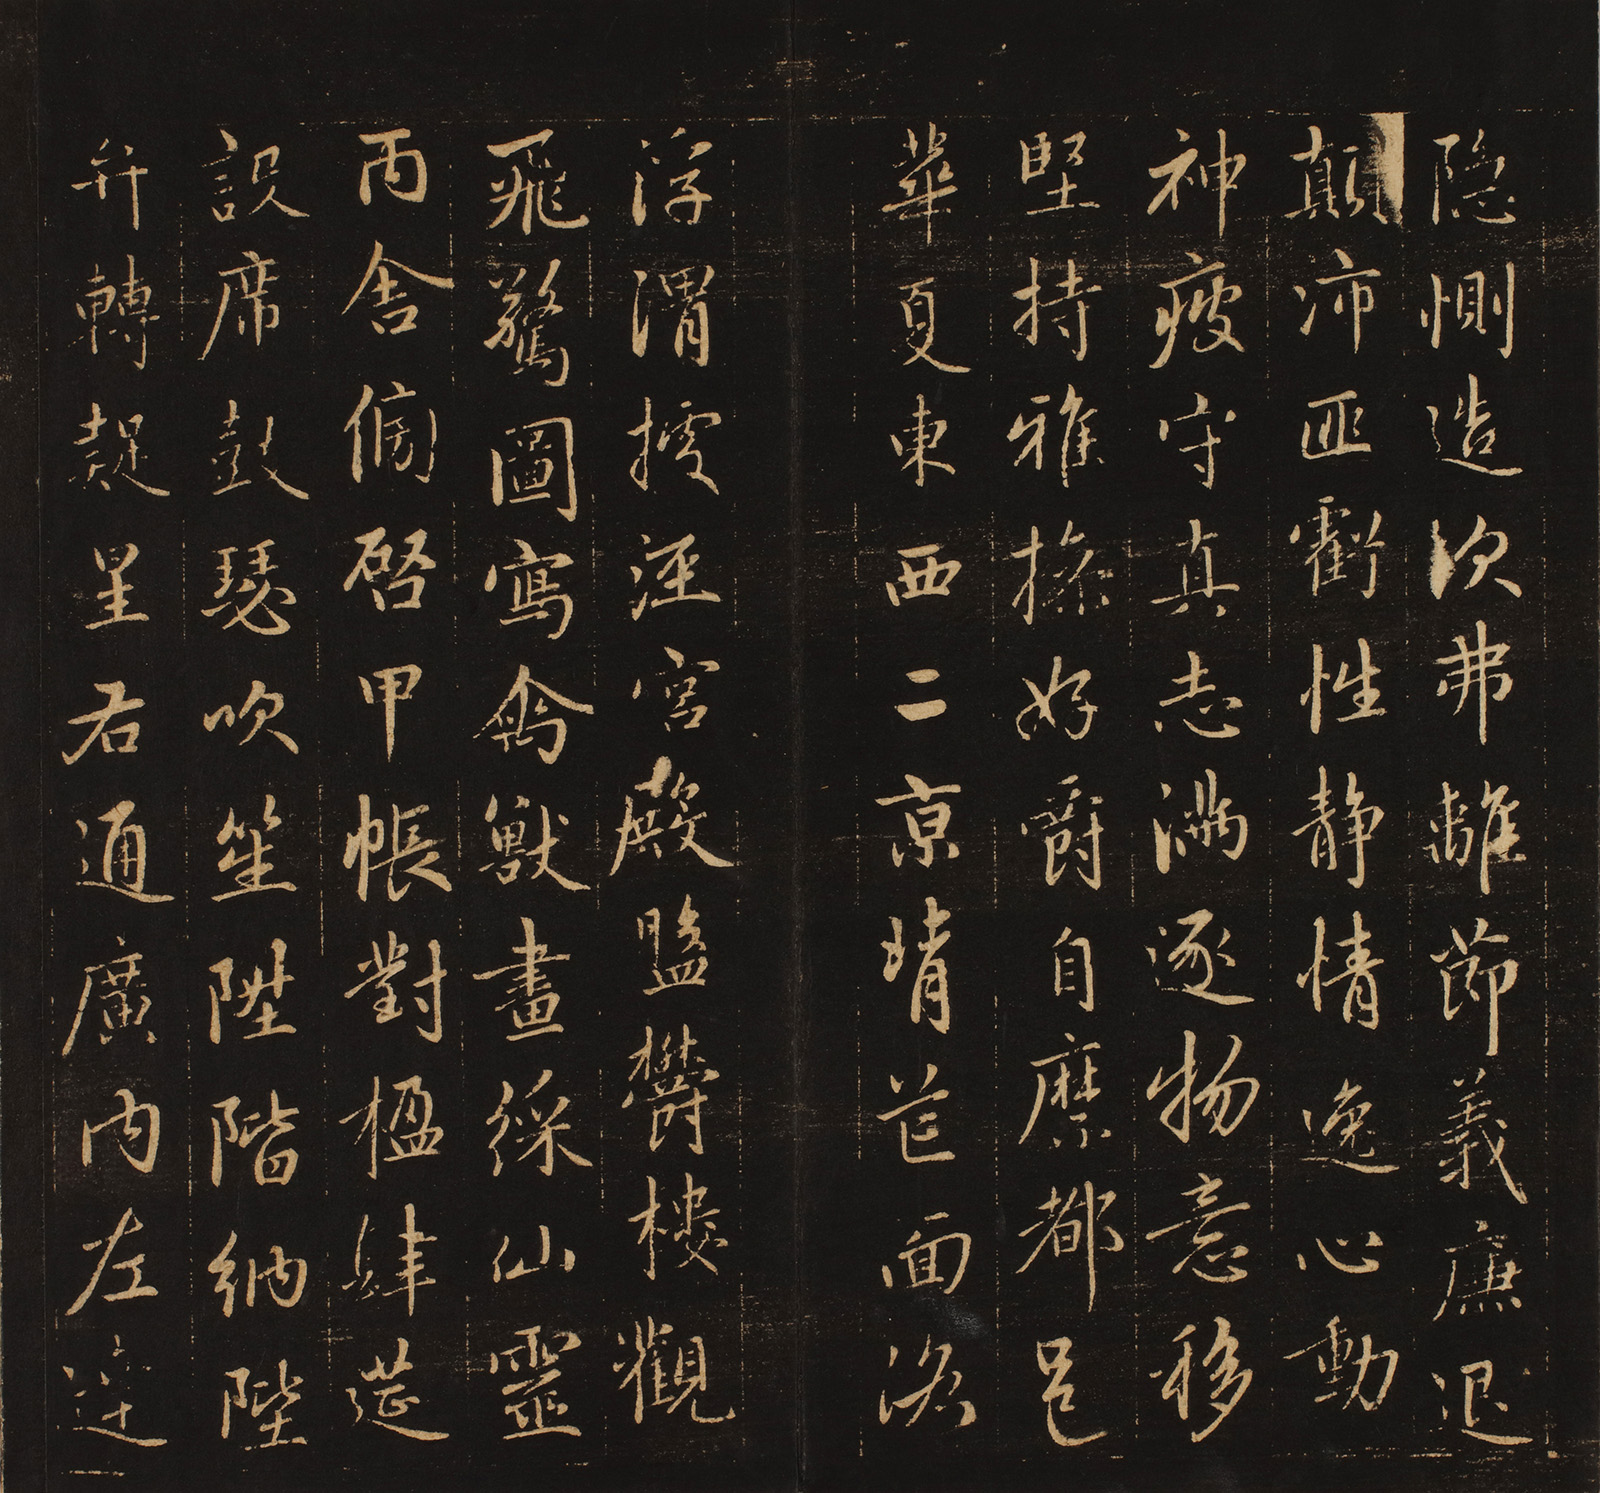 隐惻造次弗離節義廉退
顛沛匪虧性静情逸心動
神疲守真志滿逐物意移
堅持雅操好爵自縻都邑
華夏東西二京背芒面洛
浮渭據涇宮殿盤欝樓觀
飛驚圖寫禽獸畫綵仙靈
丙舍傍啓甲帳對楹肆筵
設席鼓瑟吹笙陞階納陛
弁轉疑星右通廣內左達